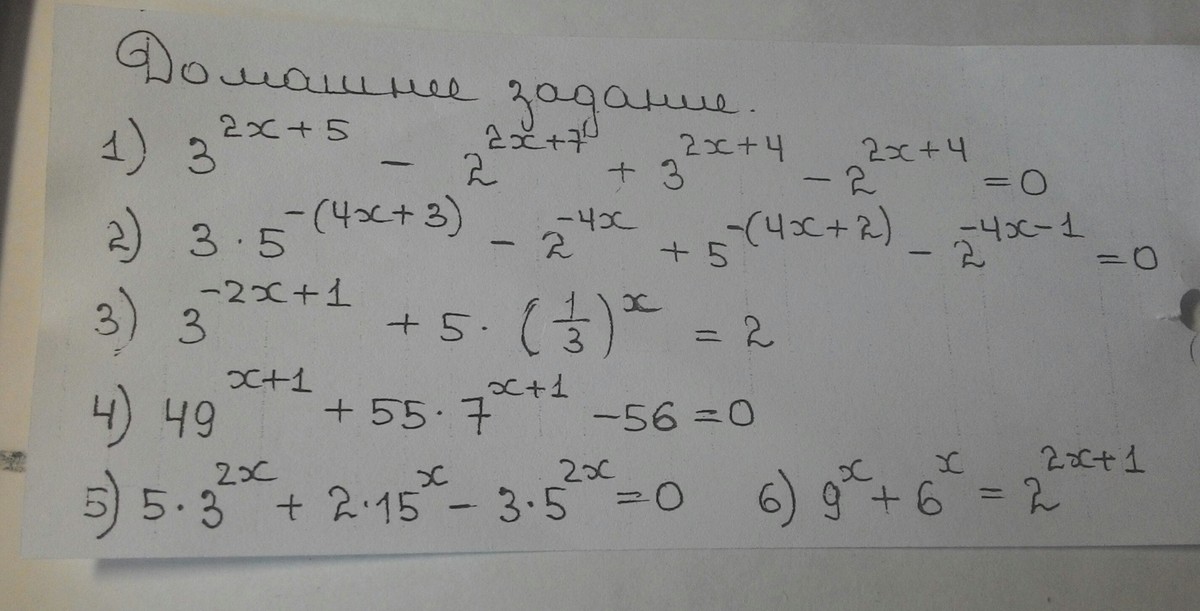 Домашнее задание.
1) 3^{2x+5} - 2^{2x+7} + 3^{2x+4} - 2^{2x+4} = 0
2) 3 · 5^{-(4x+3)} - 2^{-4x} + 5^{-(4x+2)} - 2^{-4x-1} = 0
3) 3^{-2x+1} + 5 · (1/3)^x = 2
4) 49^{x+1} + 55 · 7^{x+1} - 56 = 0
5) 5 · 3^{2x} + 2 · 15^x - 3 · 5^{2x} = 0 6) 9^x + 6^x = 2^{2x+1}